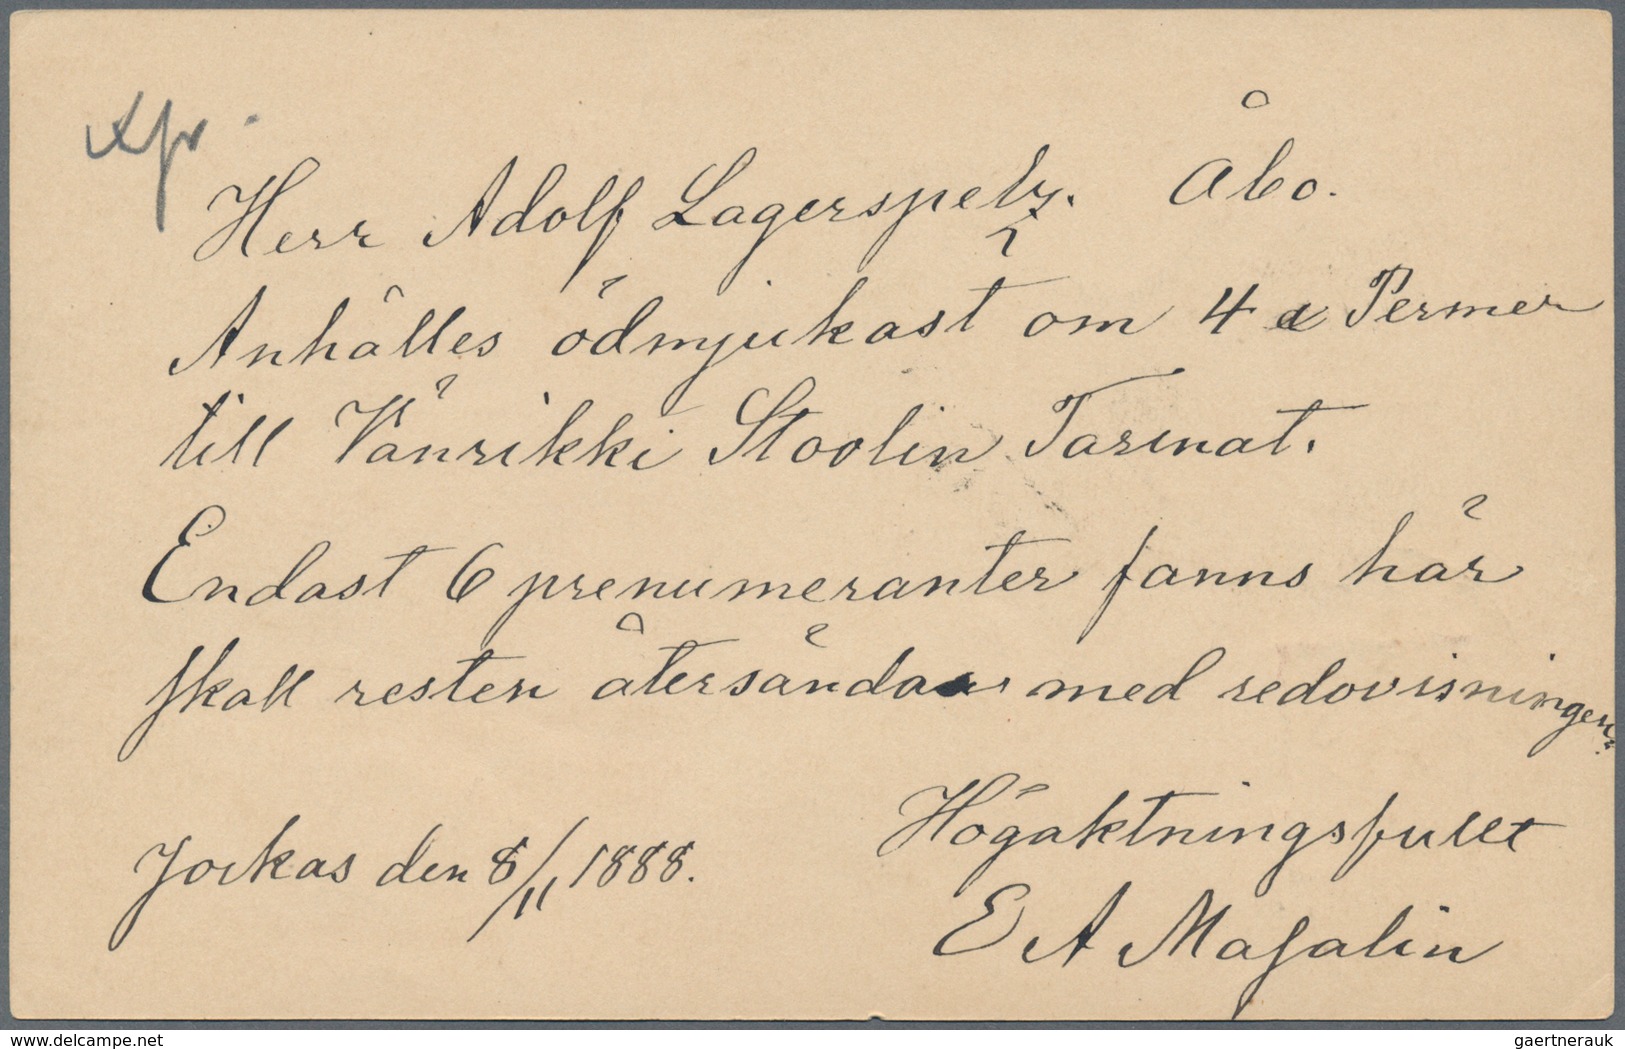 Herr Adolf Lagerspetz. Åbo.
Anhålles ödmjukast om 4 a Permer
till Vänrikki Stoolin Tarinat.
Endast 6 prenumeranter fanns här
skall resten återsändas med redovisningen.
Högaktningsfullt
Jockas den 8/11 1888.
E A Masalin
www.delcampe.net
gaertnerauk